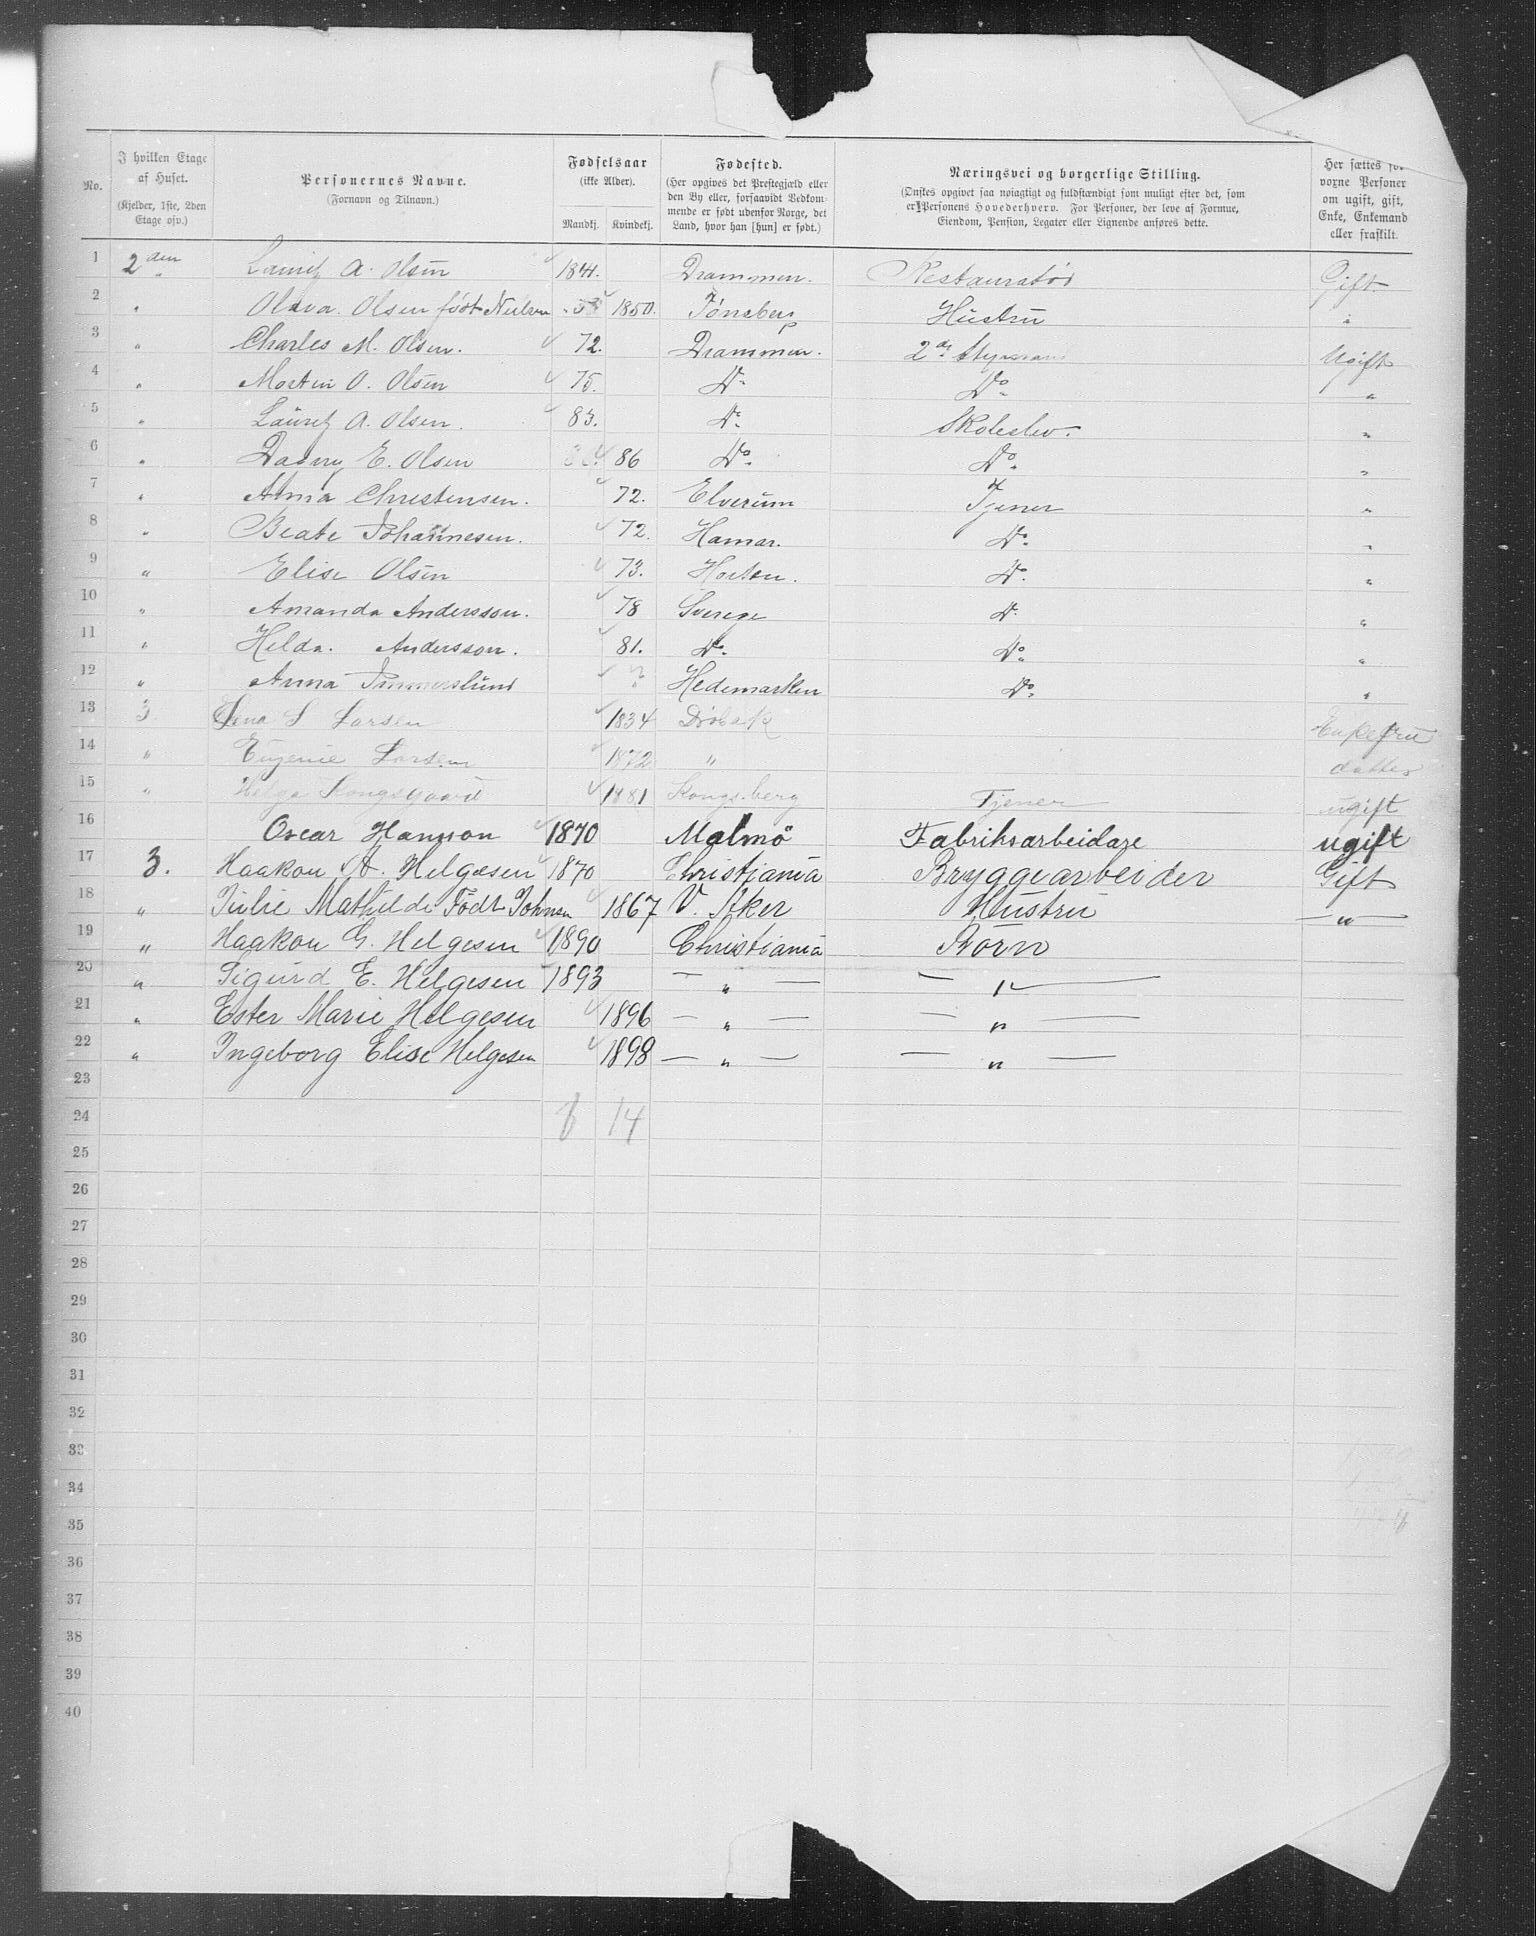 No.
I hvilken Etage af Huset. (Kjelder, 1ste, 2den Etage osv.)
Personernes Navne. (Fornavn og Tilnavn.)
Fødselsaar (ikke Alder). Mandkj. Kvindekj.
Fødested. (Her opgives det Prestegjæld eller den By eller, forsaavidt Vedkommende er født udenfor Norge, det Land, hvor han [hun] er født.)
Næringsvei og borgerlige Stilling. (Ønskes opgivet saa nøiagtigt og fuldstændigt som muligt efter det, som er Personens Hovederhverv. For Personer, der leve af Formue, Eiendom, Pension, Legater eller Lignende anføres dette.
Her sættes for voxne Personer om ugift, gift, Enke, Enkemand eller fraskilt.
1 2den Lauritz A. Olsen 1844. Drammen. Restauratør Gift.
2 " Olava. Olsen født Nielsen 1850. Tönsberg Hustru "
3 " Charles M. Olsen. 72. Drammen. 2den Styrmand Ugift
4 " Morten O. Olsen 75. Do Do "
5 " Lauritz A. Olsen. 83. Do Skoleelev. "
6 " Dagny E. Olsen 86 Do Do "
7 " Alma Christensen. 72. Elverum Tjener "
8 " Beate Johannesen. 72. Hamar. Do "
9 " Elise Olsen 73. Horten. Do "
10 " Amanda Andersson. 78 Sverege Do "
11 " Helda. Andersson. 81. Do Do "
12 " Anna Immerslund " Hedemarken Do "
13 3 Lena S Larsen 1834 Dröbak Enkefru
14 " Eugenie Larsen 1872 " datter
15 " Helga Kongsgaard 1881 Kongsberg Tjener ugift
16 Oscar Hanson 1870 Malmö Fabriksarbeidare ugift
17 3. Haakon A. Helgesen 1870 Christiania Bryggearbeider Gift
18 " Julie Mathilde Født Johnsen 1867 V. Aker Hustru — " —
19 " Haakon G. Helgesen 1890 Christiania Börn
20 " Sigurd E. Helgesen 1893 — " — — " —
21 " Ester Marie Helgesen 1896 — " — — " —
22 " Ingeborg Elise Helgesen 1898 — " — — " —
23
24 8 14
25
26
27
28
29
30
31
32
33
34
35
36
37
38
39
40